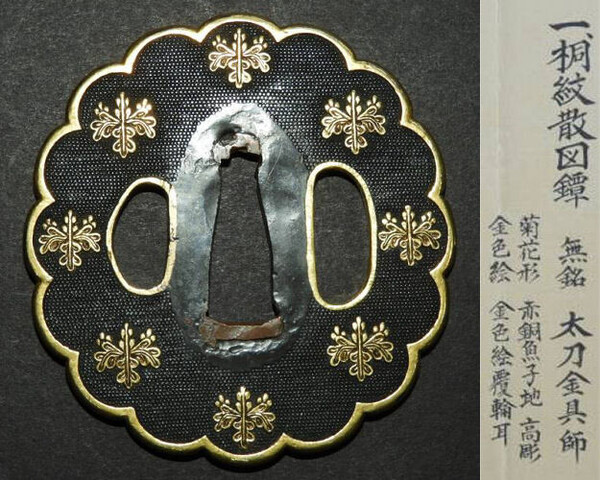 一、桐紋散図鐔 無銘 太刀金具師
菊花形 赤銅魚子地 高彫
金色絵 金色絵覆輪耳